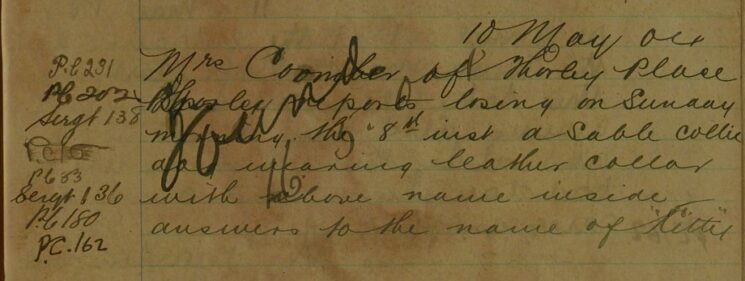 10 May 04
P.C 231
P.C 202
Sergt 138
P.C 83
Sergt 136
P.C 180
P.C. 162
Mrs Coomber of Thorley Place
Thorley reports losing on Sunday
morning the 8th inst a Sable collie
dog wearing leather collar
with above name inside
answers to the name of "Kittie"
Found